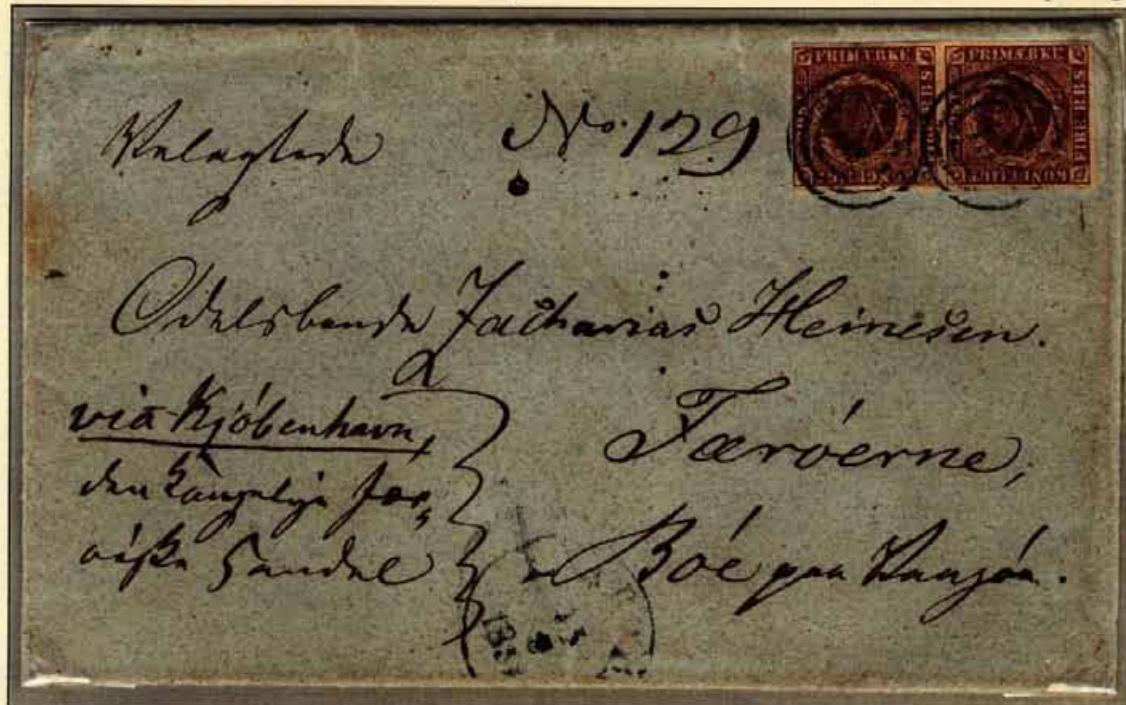 FRIMÆRKE FRIMÆRKE
FIRE R.B.S. FIRE R.B.S.
Velagtede No. 129
Odelsbonde Zacharias Heinesen.
via Kjöbenhavn,
den kongelige fær-
øiske Handel
Færöerne,
Böe paa Waagöe.